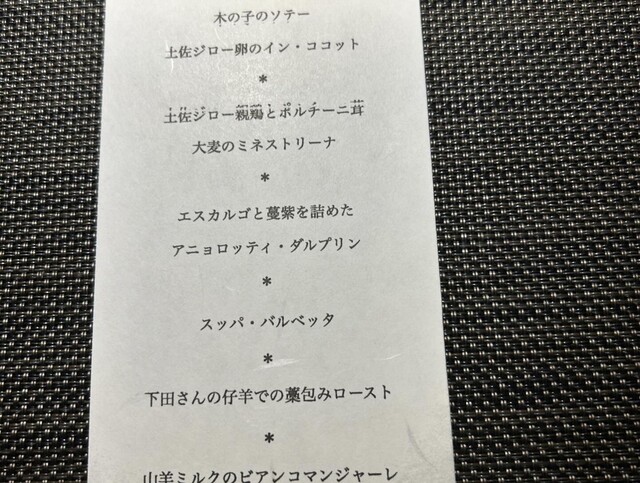 木の子のソテー
土佐ジロー卵のイン・ココット
*
土佐ジロー親鶏とポルチーニ茸
大麦のミネストリーナ
*
エスカルゴと蔓紫を詰めた
アニョロッティ・ダルプリン
*
スッパ・バルベッタ
*
下田さんの仔羊での藁包みロースト
*
山羊ミルクのビアンコマンジャーレ